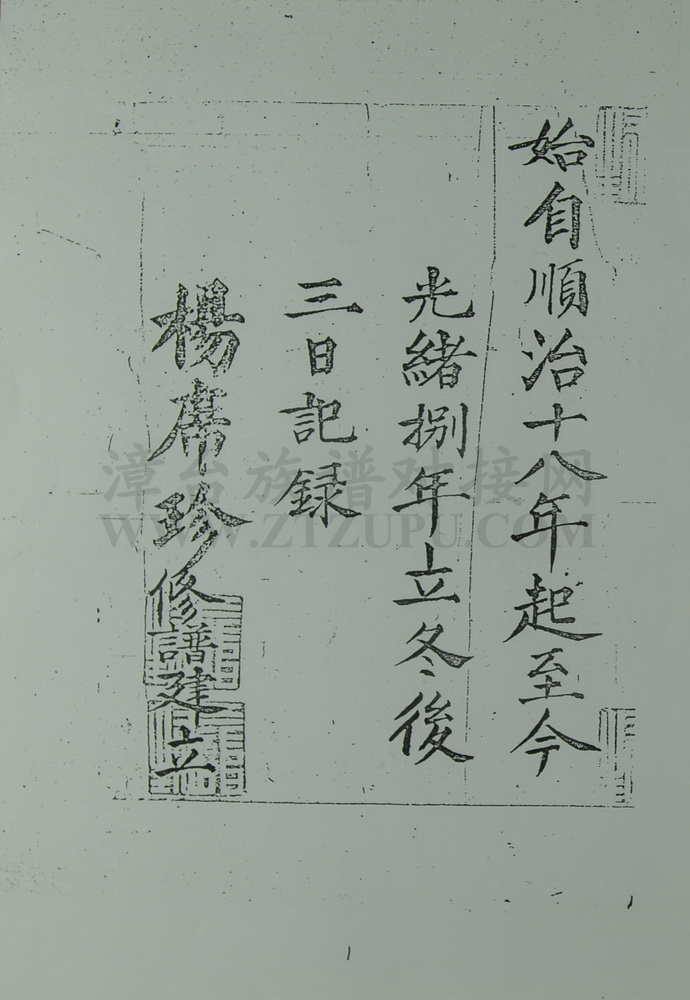 始自順治十八年起至今
光緒捌年立冬後
三日記録
楊席珍修譜建立
漳台族谱对接网
WWW.ZTZUPU.COM
1